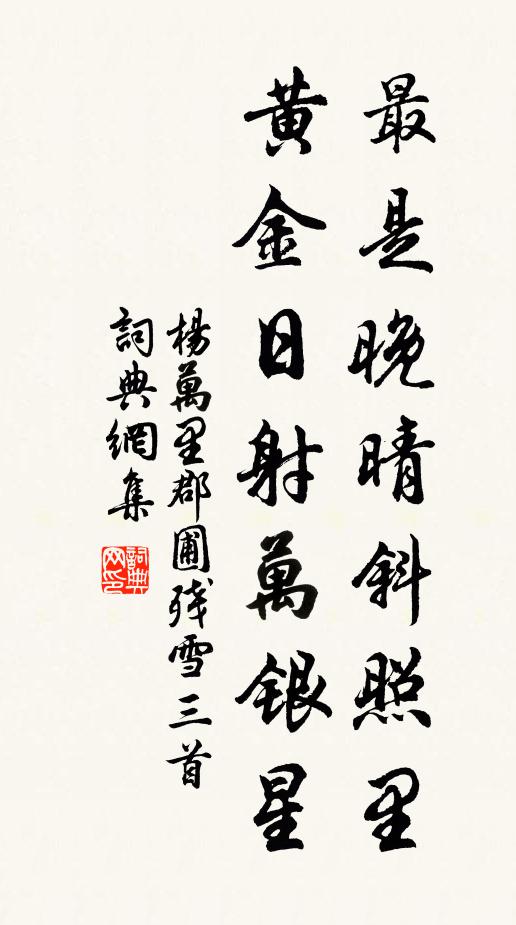 最是晚晴斜照里
黄金日射萬銀星
楊萬里郡圃残雪三首
詞典網集
詞典网印